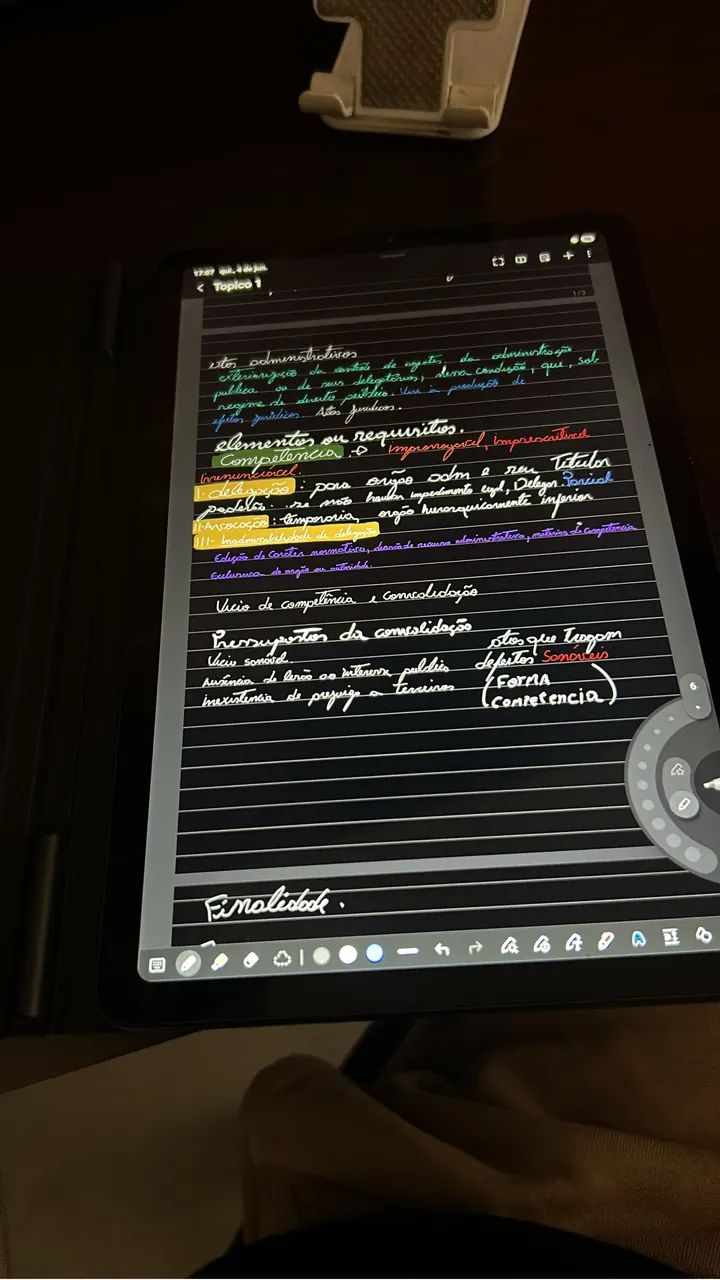 17:07 qui., 4 de jun.
< Topico 1
1/3
atos administrativos
exteriorização da vontade de agentes da administração
publica ou de seus delegatórios, nessa condição, que, sob
regime de direito publico. Vise a produção de
efeitos juridicos. Atos juridicos.
elementos ou requisitos.
Competencia. Improrrogavel, Imprescritivel
Irrenunciavel.
I- delegação: para orgão adm e seu Titular
poderão. se não houver impedimento legal, Delegar Parcial
II-Avocação: temporaria, orgão hierarquicamente inferior
III- Inadmissibilidade de delegação
Edição de carater normativo, decisão de recurso administrativo, materias de competencia
Exclusiva do orgão ou autoridade.
Vicio de competência e convalidação
Pressupostos da convalidação atos que Tragam
Vicio sanável. defeitos Sanáveis
Ausência de lesão ao interesse publico (FORMA
inexistencia de prejuizo a terceiros Competencia)
6
Finalidade.